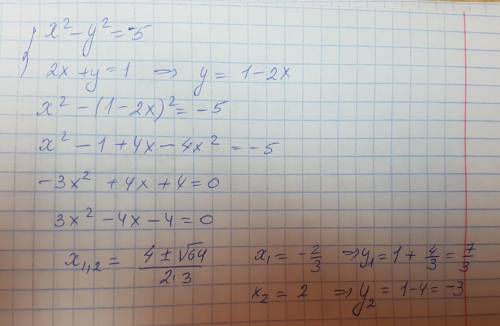 { x² - y² = -5
2x + y = 1 ⇒ y = 1 - 2x
x² - (1 - 2x)² = -5
x² - 1 + 4x - 4x² = -5
-3x² + 4x + 4 = 0
3x² - 4x - 4 = 0
x₁,₂ = (4 ± √64)/(2·3)
x₁ = -2/3 ⇒ y₁ = 1 + 4/3 = 7/3
x₂ = 2 ⇒ y₂ = 1 - 4 = -3